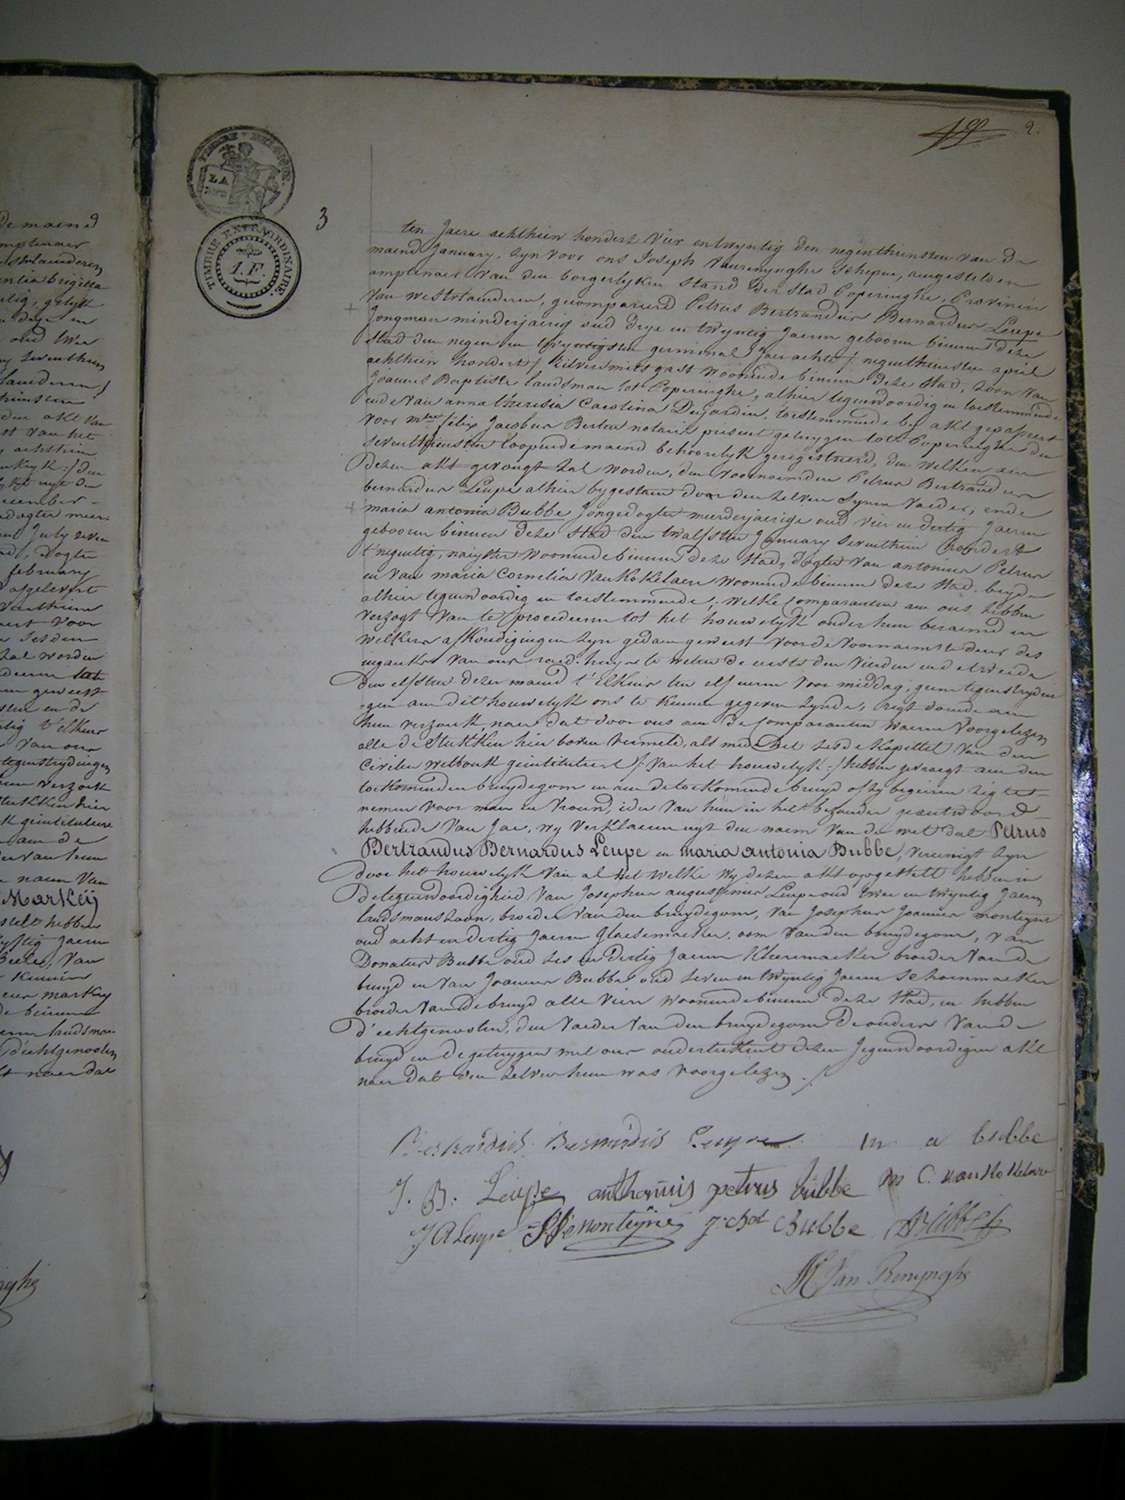 2.
3
LA
TIMBRE EXTRAORDINAIRE.
1. F.
ten Jaere achthien hondert vier en twyntig den negenthiensten van de
maend January, zyn voor ons Joseph Vanrenynghe Schepen, aengestelden
amptenaer van den borgerlyken stand der stad Poperinghe, Provincie
van westvlaenderen, gecompareerd Petrus Bertrandus Bernardus Leupe
Jongman minderjaerig oud drye en twyntig Jaeren geboren binnen deze
stad den negen en twyntigsten germinal Jaer acht / negenthiensten april
achthien hondert / Zilversmets gast woonende binnen deze stad, zoon van
Joannes Baptiste landsman tot Poperinghe, alhier tegenwoordig en toestemmende
ende van anna theresia Carolina Dujardin, toestemmende by akt gepasseert
voor mtre felix Jacobus Berten notaris present getuygen tot Poperinghe den
seventhiensten loopende maend behoorlyk geregistreerd, den welken aen
dezen akt gevougt zal worden, den voornoemden Petrus Bertrandus
bernardus Leupe alhier bygestaen door den zelven synen vaeder, ende
maria antonia Bubbe Jongedogter meerderjaerige oud vier en dertig Jaeren
geboren binnen deze stad den twalfsten January seventhien hondert
negentig, naiyster woonende binnen deze stad, dogter van antonius Petrus
en van maria Cornelia Vankokelaere woonende binnen deze stad, beyde
alhier tegenwoordig en toestemmende, welke Comparanten aen ons hebben
verzogt van te procederen tot het houwelyk onder hun beraemd en
welkers afkondigingen zyn gedaen geweest voor de voornaemste deur des
ingankx van ons raed-huys te weten de eerste den vierden ende tweede
den elfsten dezer maend t'elkens ten elf uren voor middag, geen tegenstryden-
-gen aen dit houwelyk ons te kennen gegeven zynde, regt doende aen
hun verzouk, naer dat door ons aen de Comparanten waeren voorgelezen
alle de stukken hier boven vermeld, als mede het sesde kapittel van den
Civilen wetbouk geintituleert /: van het houwelyk :/ hebben gevraegt aen den
toekomenden bruydegom en aen de toekomende bruyd of zy begeiren zig te
nemen voor man en vrouw, ider van hun in het bezonder geantwoord
hebbende van Jae, wy verklaeren uyt den naem van de wet dat Petrus
Bertrandus Bernardus Leupe en maria antonia Bubbe, vereenigt zyn
door het houwelyk van al het welke wy dezen akt opgestelt hebben in
de tegenwoordigheid van Josephus augustinus Leupe oud twee en twyntig Jaeren
landsmans zoon, broeder van den bruydegom, van Josephus Joannes monteyne
oud acht en dertig Jaeren glaesemaeker, oom van den bruydegom, van
Donatus Bubbe oud ses en dertig Jaeren kleermaeker broeder van de
bruyd en van Joannes Bubbe, oud seven en twyntig Jaeren schoenmaeker
broeder van de bruyd alle vier woonende binnen deze stad, en hebben
d'echtgenoten, den vaeder van den bruydegom de ouders van de
bruyd en de getuygen met ons onderteekent dezen Jegenwoordigen akt
naer dat den zelven hun was voorgelezen.
Bertrandus Bernardus Leupe m a bubbe
J. B. Leupe anthonius petrus bubbe m C. van Kokelaere
J A Leupe J J monteyne J. Bubbe D Bubbe
J Van Renynghe